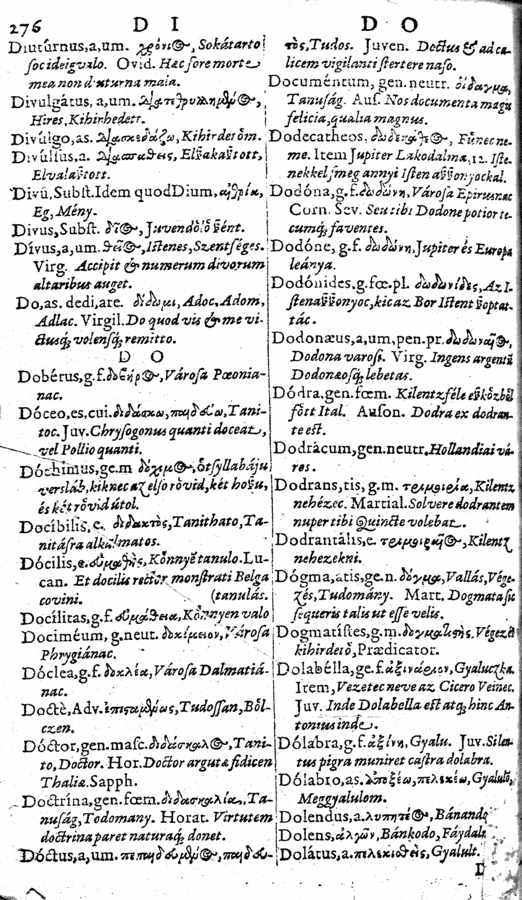 276 D I D O
Diutúrnus,a,um. χρόνι@, Sokátarto
soc ideigvalo. Ovid. Hæc fore morte
mea non diuturna mala.
Divulgátus, a, um.
Híres, Kihirhedett.
Divúlgo, as. Kihirdetőm.
Divúlsus,a.
Elvalaſtott.
Divú, Subſt. Idem quod Dium,
Eg, Mény.
Divus, Subſt.
Dívus,a,um. Iſtenes, Szentſéges.
Virg. Accipit & numerum divorum
altaribus auget.
Do, as. dedi, are. δίδωμι, Adoc, Adom,
Adlac. Virgil. Do quod vis & me vi-
ctusq; volensq; remitto.
D O
Dobérus, g.f. Városa Pœonia-
nac.
Dóceo, es, cui. διδάσκω, Tani-
toc. Juv. Chryſogonus quanti doceat,
vel Pollio quanti.
Dóchimus, ge.m δόχιμ@, őtſyllabáju
verslàb, kiknec az elſo rővid, két hoſſu,
és két rővid útol.
Docíbilis, e. Tanithato, Ta-
nitáſra alkalmatos.
Dócilis, e. Kőnnyẽ tanulo. Lu-
can. Et docilis rector monſtrati Belga
covini. (tanulás.
Docílitas, g.f. Kőnnyen valo
Dociméum, g.neut. Városa
Phrygiánac.
Dóclea, g.f. δοκλέα, Városa Dalmatiá-
nac.
Doctè, Adv. Tudoſſan, Ből-
czen.
Dóctor, gen. maſc. διδάσκαλ@, Tani-
to, Doctor. Hor. Doctor argutæ fidicen
Thaliæ. Sapph.
Doctrína, gen. fœm. διδασκαλία, Ta-
nuſág, Todomany. Horat. Virtutem
doctrina paret naturaq; donet.
Dóctus, a, um.
Tudos. Juven. Doctus & ad ca-
licem vigilanti ſtertere naſo.
Documéntum, gen. neutr.
Tanuſág. Auſ. Nos documenta magna
felicia, qualia magnus.
Dodecatheos,
me. Item Jupiter Lakodalma, 12. Iſte-
nekkel, meg annyi Iſten
Dodóna, g.f. δωδώνη, Városa Epirusnac
Corn. Sev. Seu tibi Dodone potior te-
cumq; faventes.
Dodóne, g.f. δωδώνη. Jupiter és Europa
leánya.
Dodónides, g. fœ. pl. δωδωνίδες, Az I-
ſten kic az Bor Iſtent
tác.
Dodonæus, a, um, pen. pr.
Dodona varosi. Virg. Ingens argenti
Dodonæosq; lebetas.
Dódra, gen. fœm. Kilentzféle eſzkőzből
főtt Ital. Auſon. Dodra ex dodran-
te eſt.
Dodrácum, gen. neutr. Hollandiai vá-
ros.
Dodrans, tis, g.m. Kilentz
nehézec. Martial. Solvere dodrantem
nuper tibi Quincte volebat.
Dodrantális, e. Kilentz
nehezekni.
Dógma, átis, ge.n. δόγμα, Vallás, Vége-
zés, Tudomány. Mart. Dogmata ſic
ſequeris talis ut eſſe velis.
Dogmatíſtes, g.m. Végezést
kihirdető, Prædicator.
Dolabélla, ge.f. ἀξινάριον, Gyaluczka.
Irem, Vezetec neve az Cicero Veinec.
Juv. Inde Dolabella eſt atq; hinc An-
tonius inde.
Dólabra, g.f. ἀξίνη, Gyalu. Juv. Silen-
tus pigra muniret caſtra dolabra.
Dólabro, as. Gyalulo,
Meggyalulom.
Dolendus, a. Bánando
Dolens, ἀλγῶν, Bánkodo, Fáydalo
Dolátus, a. πελεκιθεὶς, Gyalult.
D